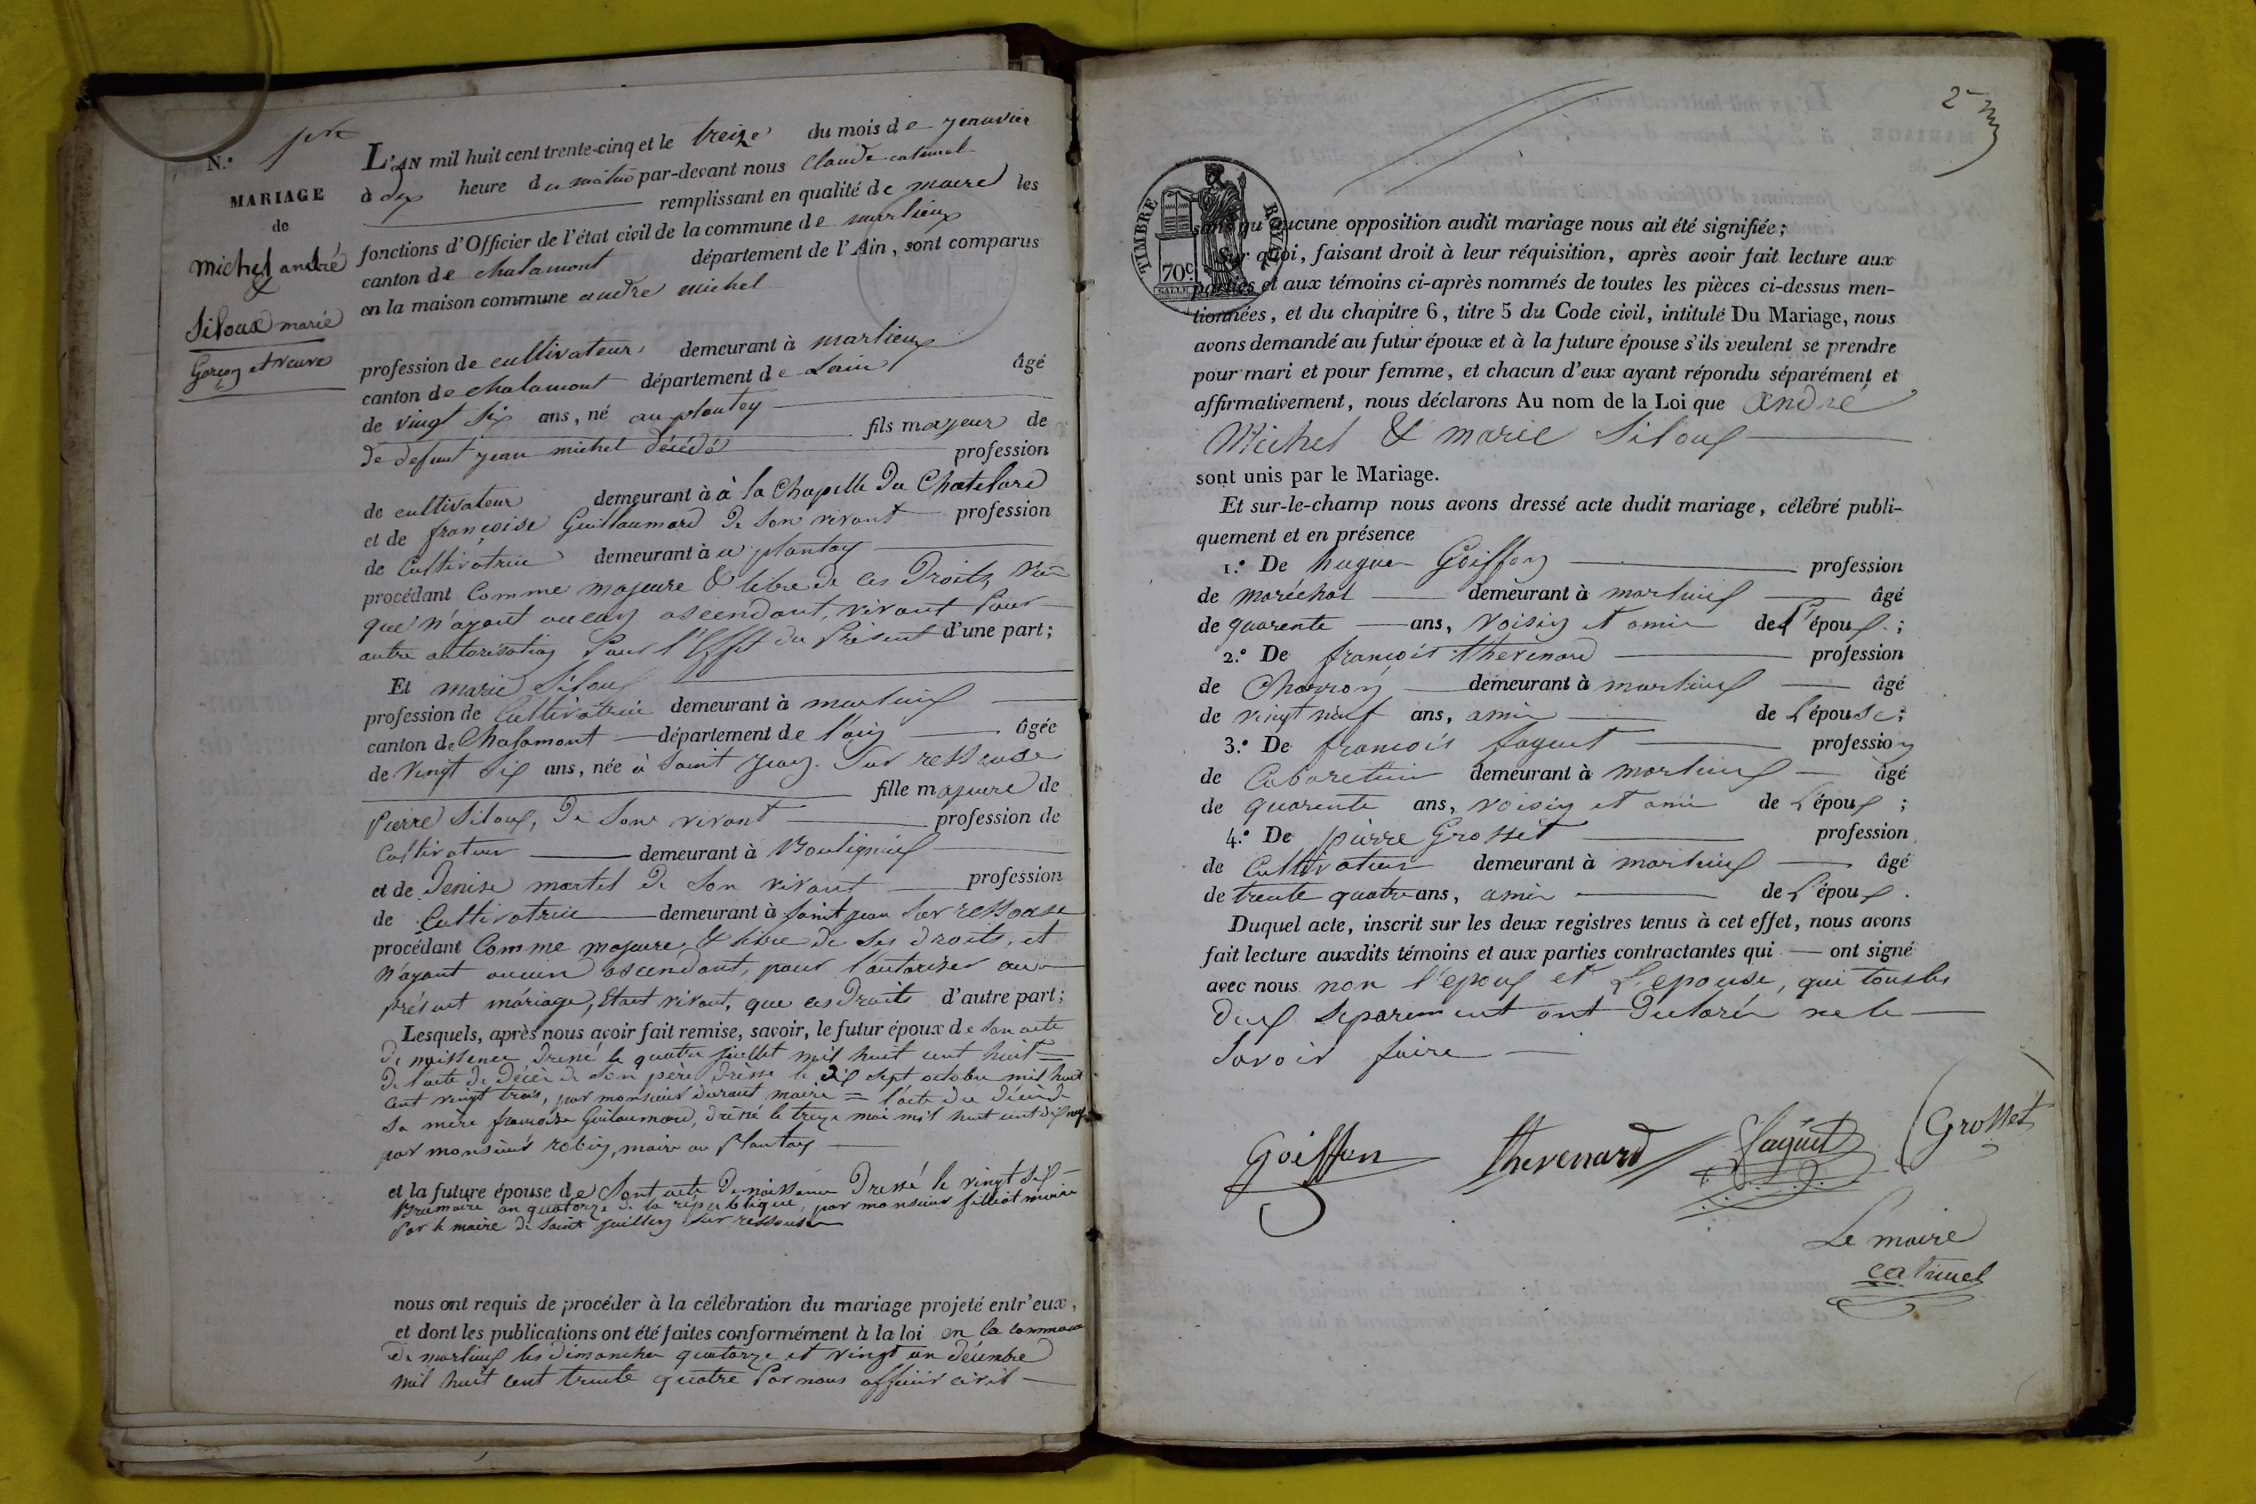 N.° 1re
MARIAGE
de
Michel andré
Siloux marie
Garçon et veuve
L'AN mil huit cent trente-cinq et le treize du mois de jenuvier
à dix heure du matin par-devant nous Claude catimel
remplissant en qualité de maire les
fonctions d'Officier de l'état civil de la commune de marlieux
canton de chalamont département de l'Ain, sont comparus
en la maison commune andré michel
profession de cultivateur demeurant à marlieux
canton de chalamont département de Lain âgé
de vingt six ans, né au plantey
fils majeur de
de defunt jean michel décédé profession
de cultivateur demeurant à à la Chapelle Du Chatelard
et de françoise Guillaumard De son vivant profession
de Cultivatrice demeurant à au plantay
procédant Comme majeure & libre de ces Droits, Vû
que n'ayant aucun ascendant, vivant Pour
autre autorisation Pour l'Effet du Présent d'une part;
Et marie Siloux
profession de Cultivatrice demeurant à marlieux
canton de Chalamont département de l'ain âgée
de vingt six ans, née à Saint jean Sur ressouse
fille majeure de
Pierre Siloux, De Son vivant profession de
Cultivateur demeurant à Bouligneux
et de Denise martel De Son vivant profession
de Cultivatrice demeurant à Saint jean Sur ressouse
procédant Comme majeure & libre de ses droits, et
N'ayant aucun ascendant, pour l'autoriser au
présent mariage, Etant vivant, que ces Droits d'autre part;
Lesquels, après nous avoir fait remise, savoir, le futur époux de son acte
De naissence Dressé le quatre juillet mil huit cent huit =
De l'acte de décès de son père Dressé le dix sept octobre mil huit
cent vingt trois, par monsieur durand maire = l'acte du décès de
Sa mère francoise Guilaumard, dressé le treize mai mil huit cent dix neuf
par monsieur robin, maire au Plantay
et la future épouse de Sont acte De naissence Dressé le vingt six
Brumaire an quatorze de la république, par monsieur filliot maire
Par le maire de Saint juillien Sur ressouse
nous ont requis de procéder à la célébration du mariage projeté entr'eux,
et dont les publications ont été faites conformément à la loi en la commune
De marlieux les dimanches quatorze et vingt un décembre
mil huit cent trente quatre Par nous officier civil
2
TIMBRE ROYAL
70c
sans qu'aucune opposition audit mariage nous ait été signifiée;
Sur quoi, faisant droit à leur réquisition, après avoir fait lecture aux
parties et aux témoins ci-après nommés de toutes les pièces ci-dessus men-
tionnées, et du chapitre 6, titre 5 du Code civil, intitulé Du Mariage, nous
avons demandé au futur époux et à la future épouse s'ils veulent se prendre
pour mari et pour femme, et chacun d'eux ayant répondu séparément et
affirmativement, nous déclarons Au nom de la Loi que André
Michel & marie Siloux
sont unis par le Mariage.
Et sur-le-champ nous avons dressé acte dudit mariage, célébré publi-
quement et en présence
1.° De hugues Goiffon profession
de maréchal demeurant à marlieux âgé
de quarente ans, voisin et amis de L'époux;
2.° De françois thevenard profession
de Charron demeurant à marlieux âgé
de vingt neuf ans, amis de L'épouse;
3.° De françois faguet profession
de Cabaretier demeurant à marlieux âgé
de quarente ans, voisin et ami de L'époux;
4.° De pierre Grosset profession
de Cultivateur demeurant à marlieux âgé
de trente quatre ans, amis de L'époux.
Duquel acte, inscrit sur les deux registres tenus à cet effet, nous avons
fait lecture auxdits témoins et aux parties contractantes qui ont signé
avec nous non l'epoux et L'epouse, qui tous les
Deux Separement ont Déclarés ne le
Savoir faire
Goiffon thevenard faguet Grosset
Le maire
catimel